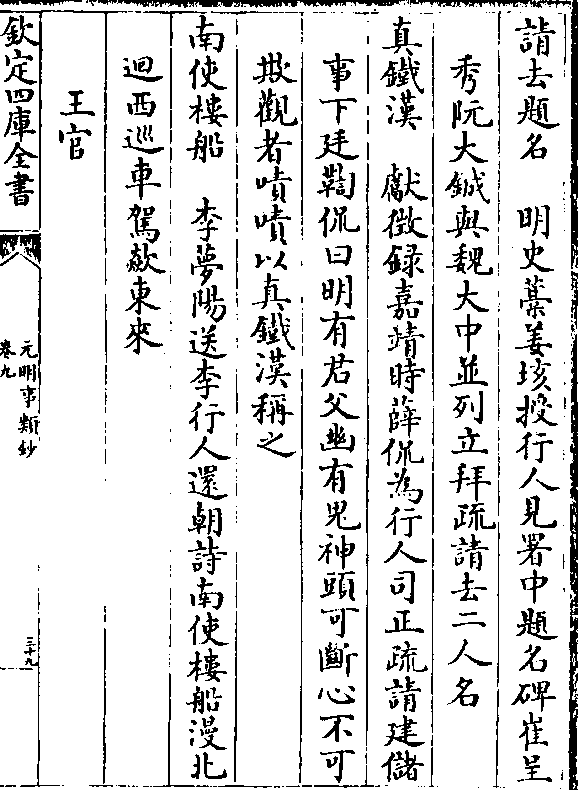 請去題名　明史藁姜垓授行人見署中題名碑崔呈
秀阮大鋮與魏大中並列立拜疏請去二人名
真鐵漢　獻徵録嘉靖時薛侃為行人司正疏請建儲
事下廷鞫侃曰明有君父幽有鬼神頭可斷心不可
欺觀者嘖嘖以真鐵漢稱之
南使樓船　李夢陽送李行人還朝詩南使樓船漫北
迴西巡車駕歘東來
王官
欽定四庫全書
元明事類鈔
卷九
三十九